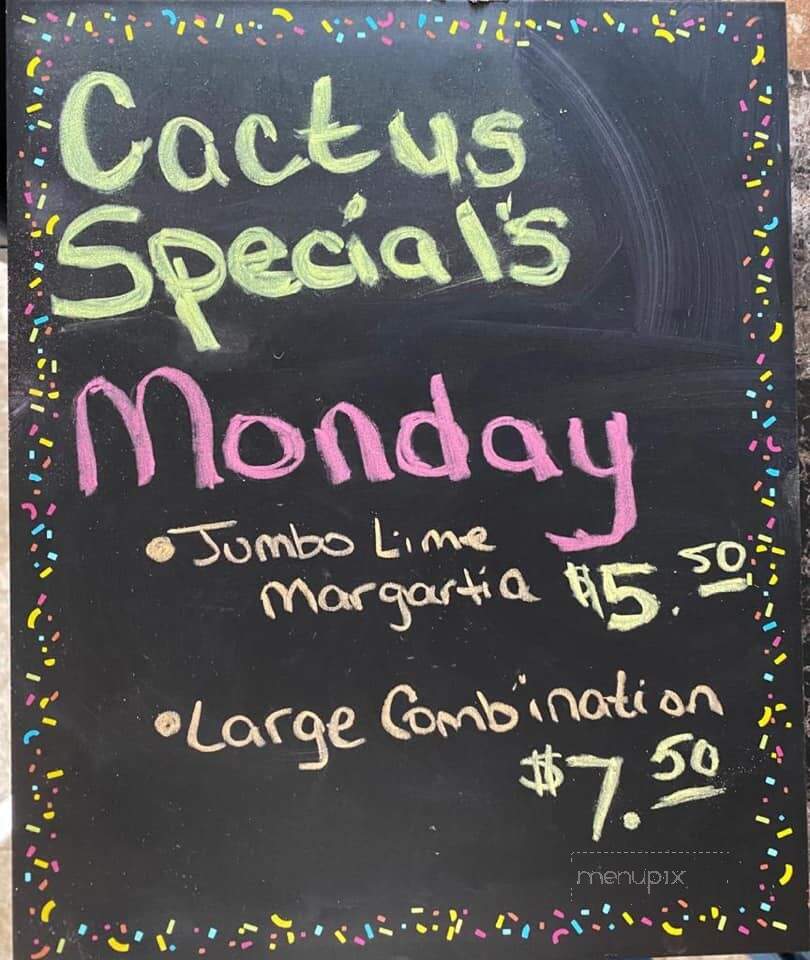 Cactus
Special's
Monday
• Jumbo Lime
Margartia $5.50
• Large Combination
$7.50
menupix